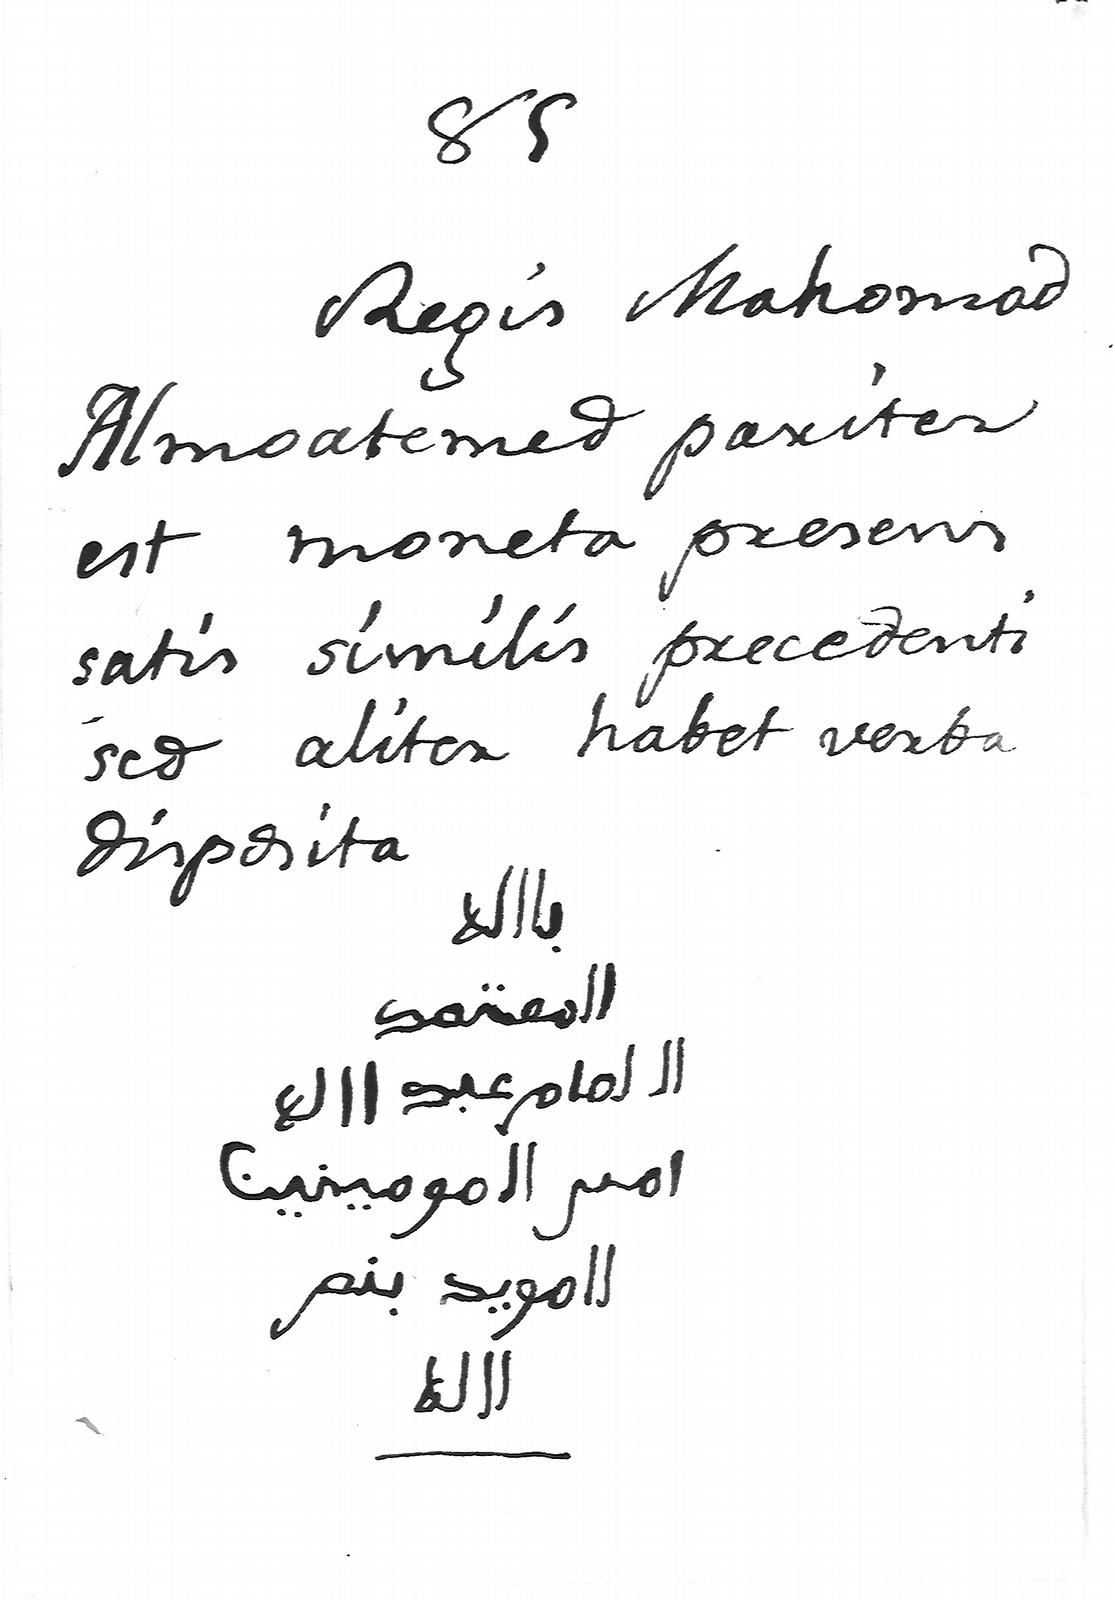 85
Regis Mahomad
Almoatemed pariter
est moneta presens
satis similis precedenti
sed aliter habet verba
disposita
باالله
المعتمد
الامام عبد الله
امير المومينين
المويد بنصر
الله